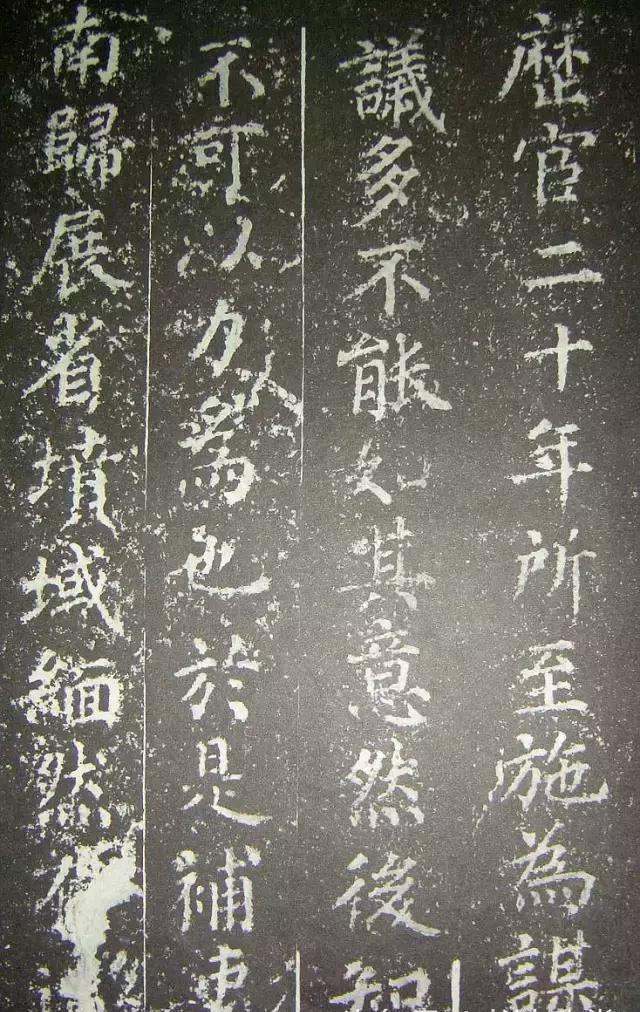 歷官二十年所至施為謀
議多不能如其意然後知
不可以力為也於是補吏
南歸展省墳域緬然